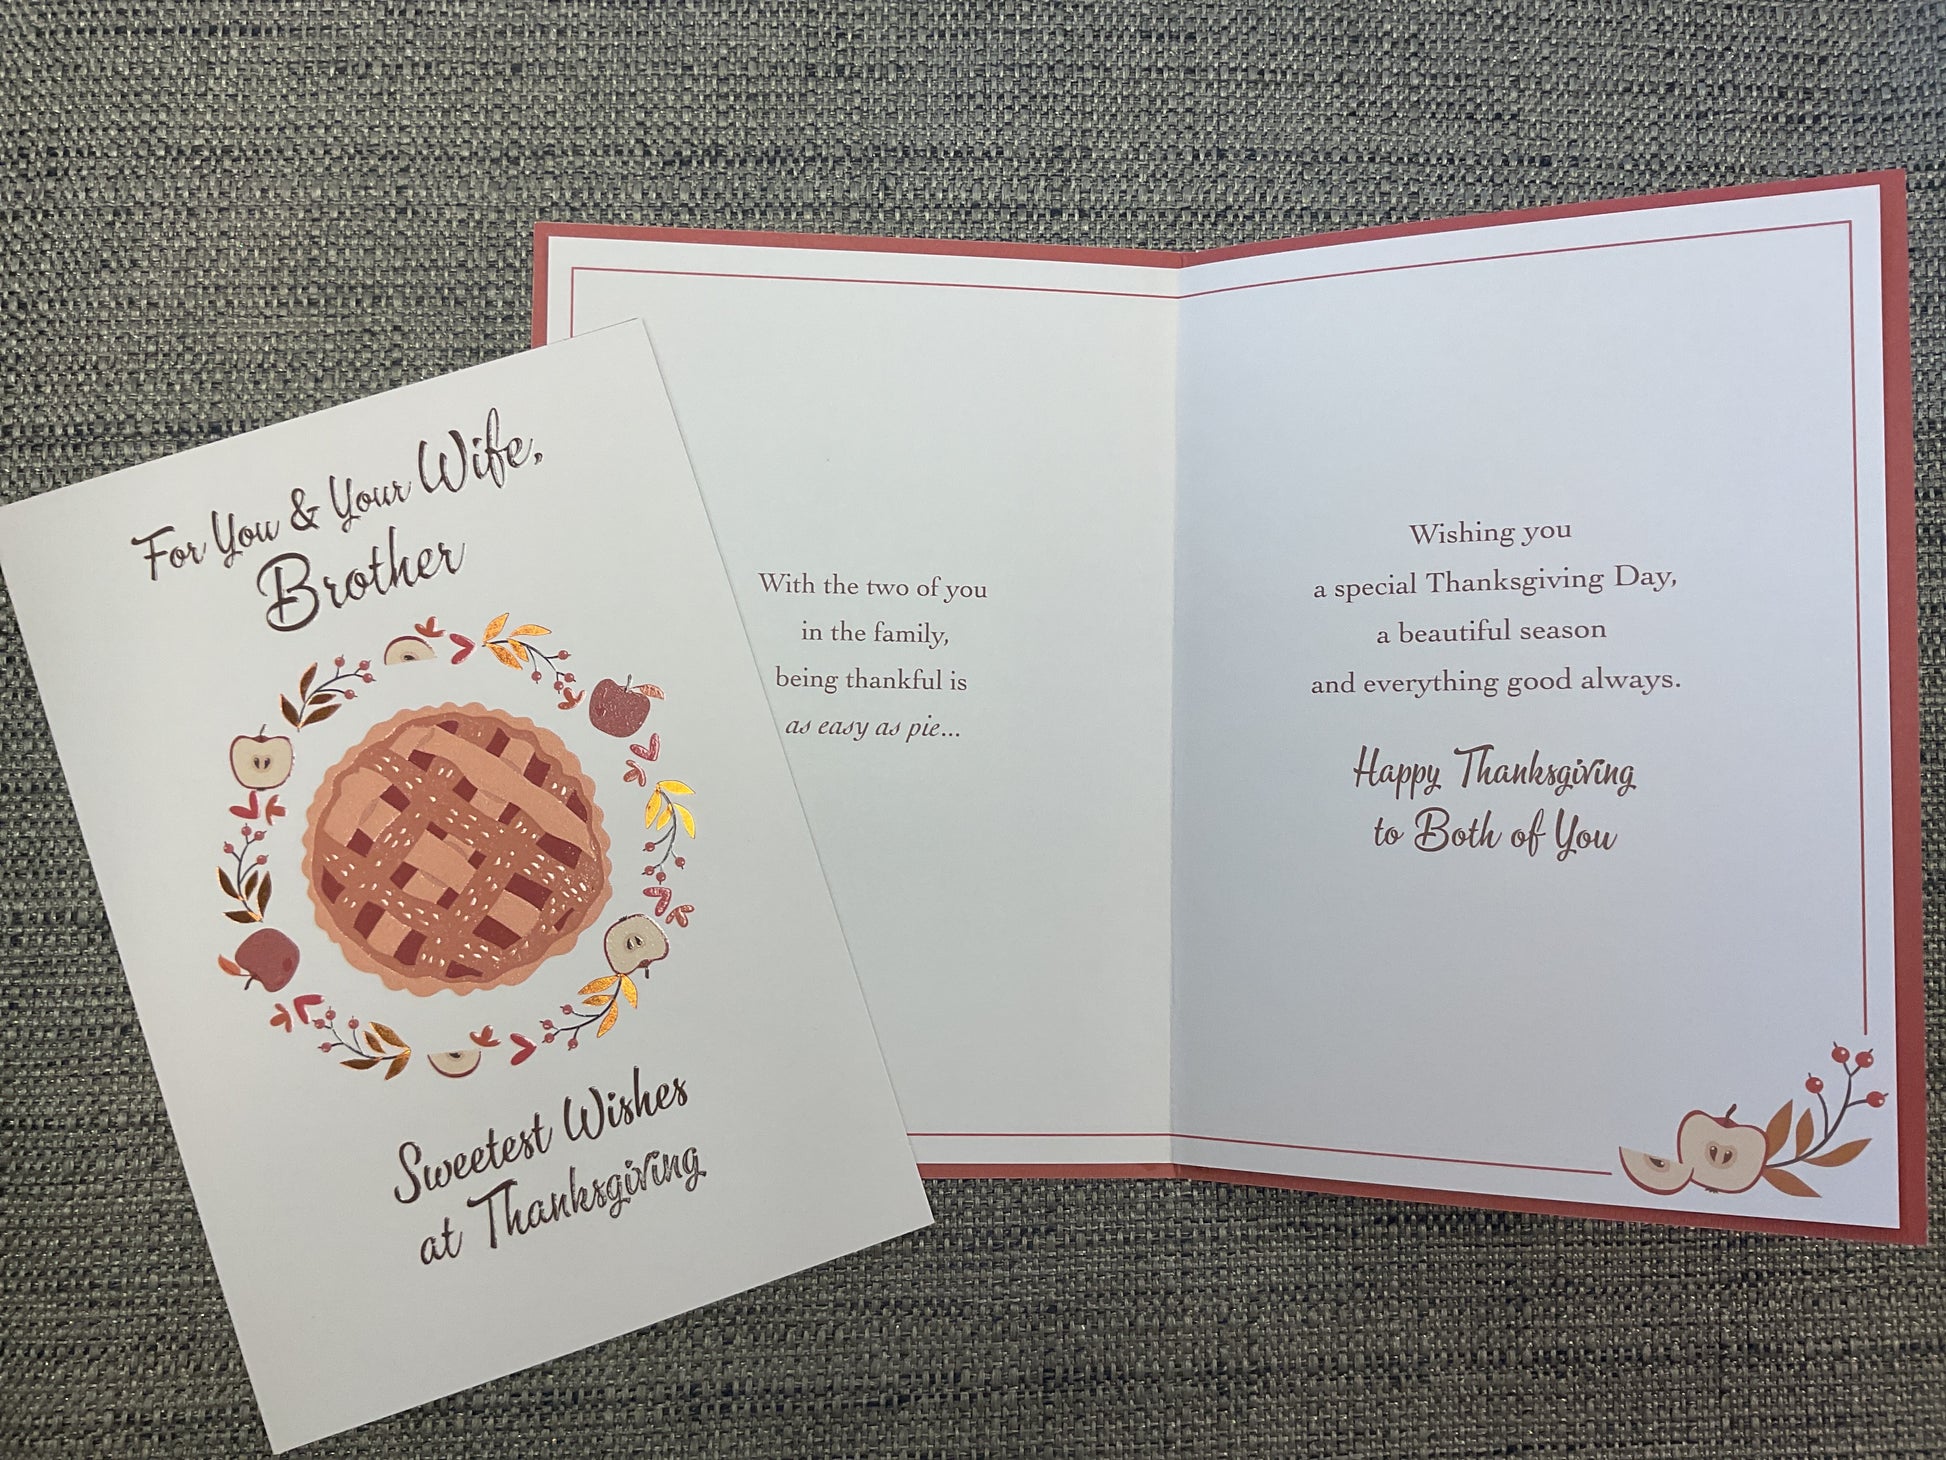 For You & Your Wife,
Brother
Sweetest Wishes
at Thanksgiving
With the two of you
in the family,
being thankful is
as easy as pie...
Wishing you
a special Thanksgiving Day,
a beautiful season
and everything good always.
Happy Thanksgiving
to Both of You